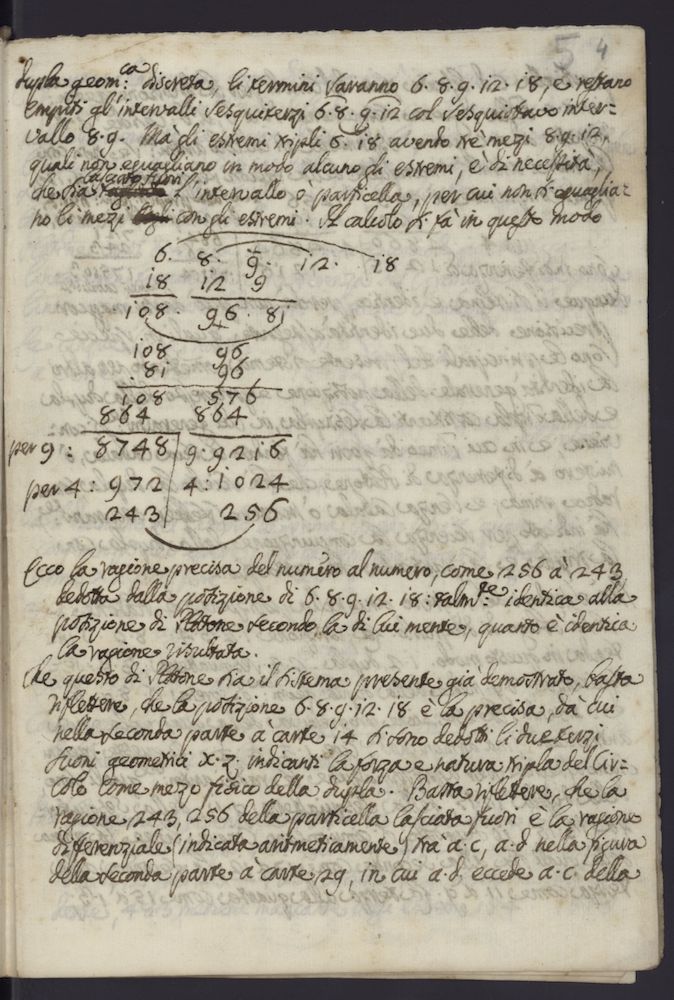 5 4
dupla geom:ca discreta, li termini saranno 6. 8. 9. 12. 18, e restano
empiti gl'intervalli sesquiterzj 6. 8. 9. 12 col sesquiottavo inter=
vallo 8. 9. Mà gli estremi tripli 6. 18 avendo trè mezi 8. 9. 12,
quali non eguagliano in modo alcuno gli estremi, è di necessità,
che sia lasciato fuori l'intervallo ò particella, per cui non si eguaglia=
no li mezi con gli estremi. Il calcolo si fà in questo modo
6. 8. 9. 12. 18
18 12 9
108. 96. 81
108 96
81 96
108 576
864 864
per 9: 8748 9. 9216
per 4: 972 4: 1024
243 256
Ecco la ragione precisa del numero al numero, come 256 à 243,
dedotta dalla posizione di 6. 8. 9. 12. 18: talmte: identica alla
posizione di Platone secondo la di lui mente, quanto è identica
la ragione risultata.
Che questo di Platone sia il sistema presente già demostrato, basta
riflettere, che la posizione 6. 8. 9. 12. 18 è la precisa, da cui
nella seconda parte à carte 14 si sono dedotti li due terzi
suoni geometrici x. z. indicanti la forza e natura tripla del Cir=
colo come mezo fisico della dupla. Basta riflettere, che la
ragione 243, 256 della particella lasciata fuori è la ragione
differenziale (indicata aritmeticamente) trà a. c, a. d nella figura
della seconda parte à carte 29, in cui a. d. eccede a. c. della